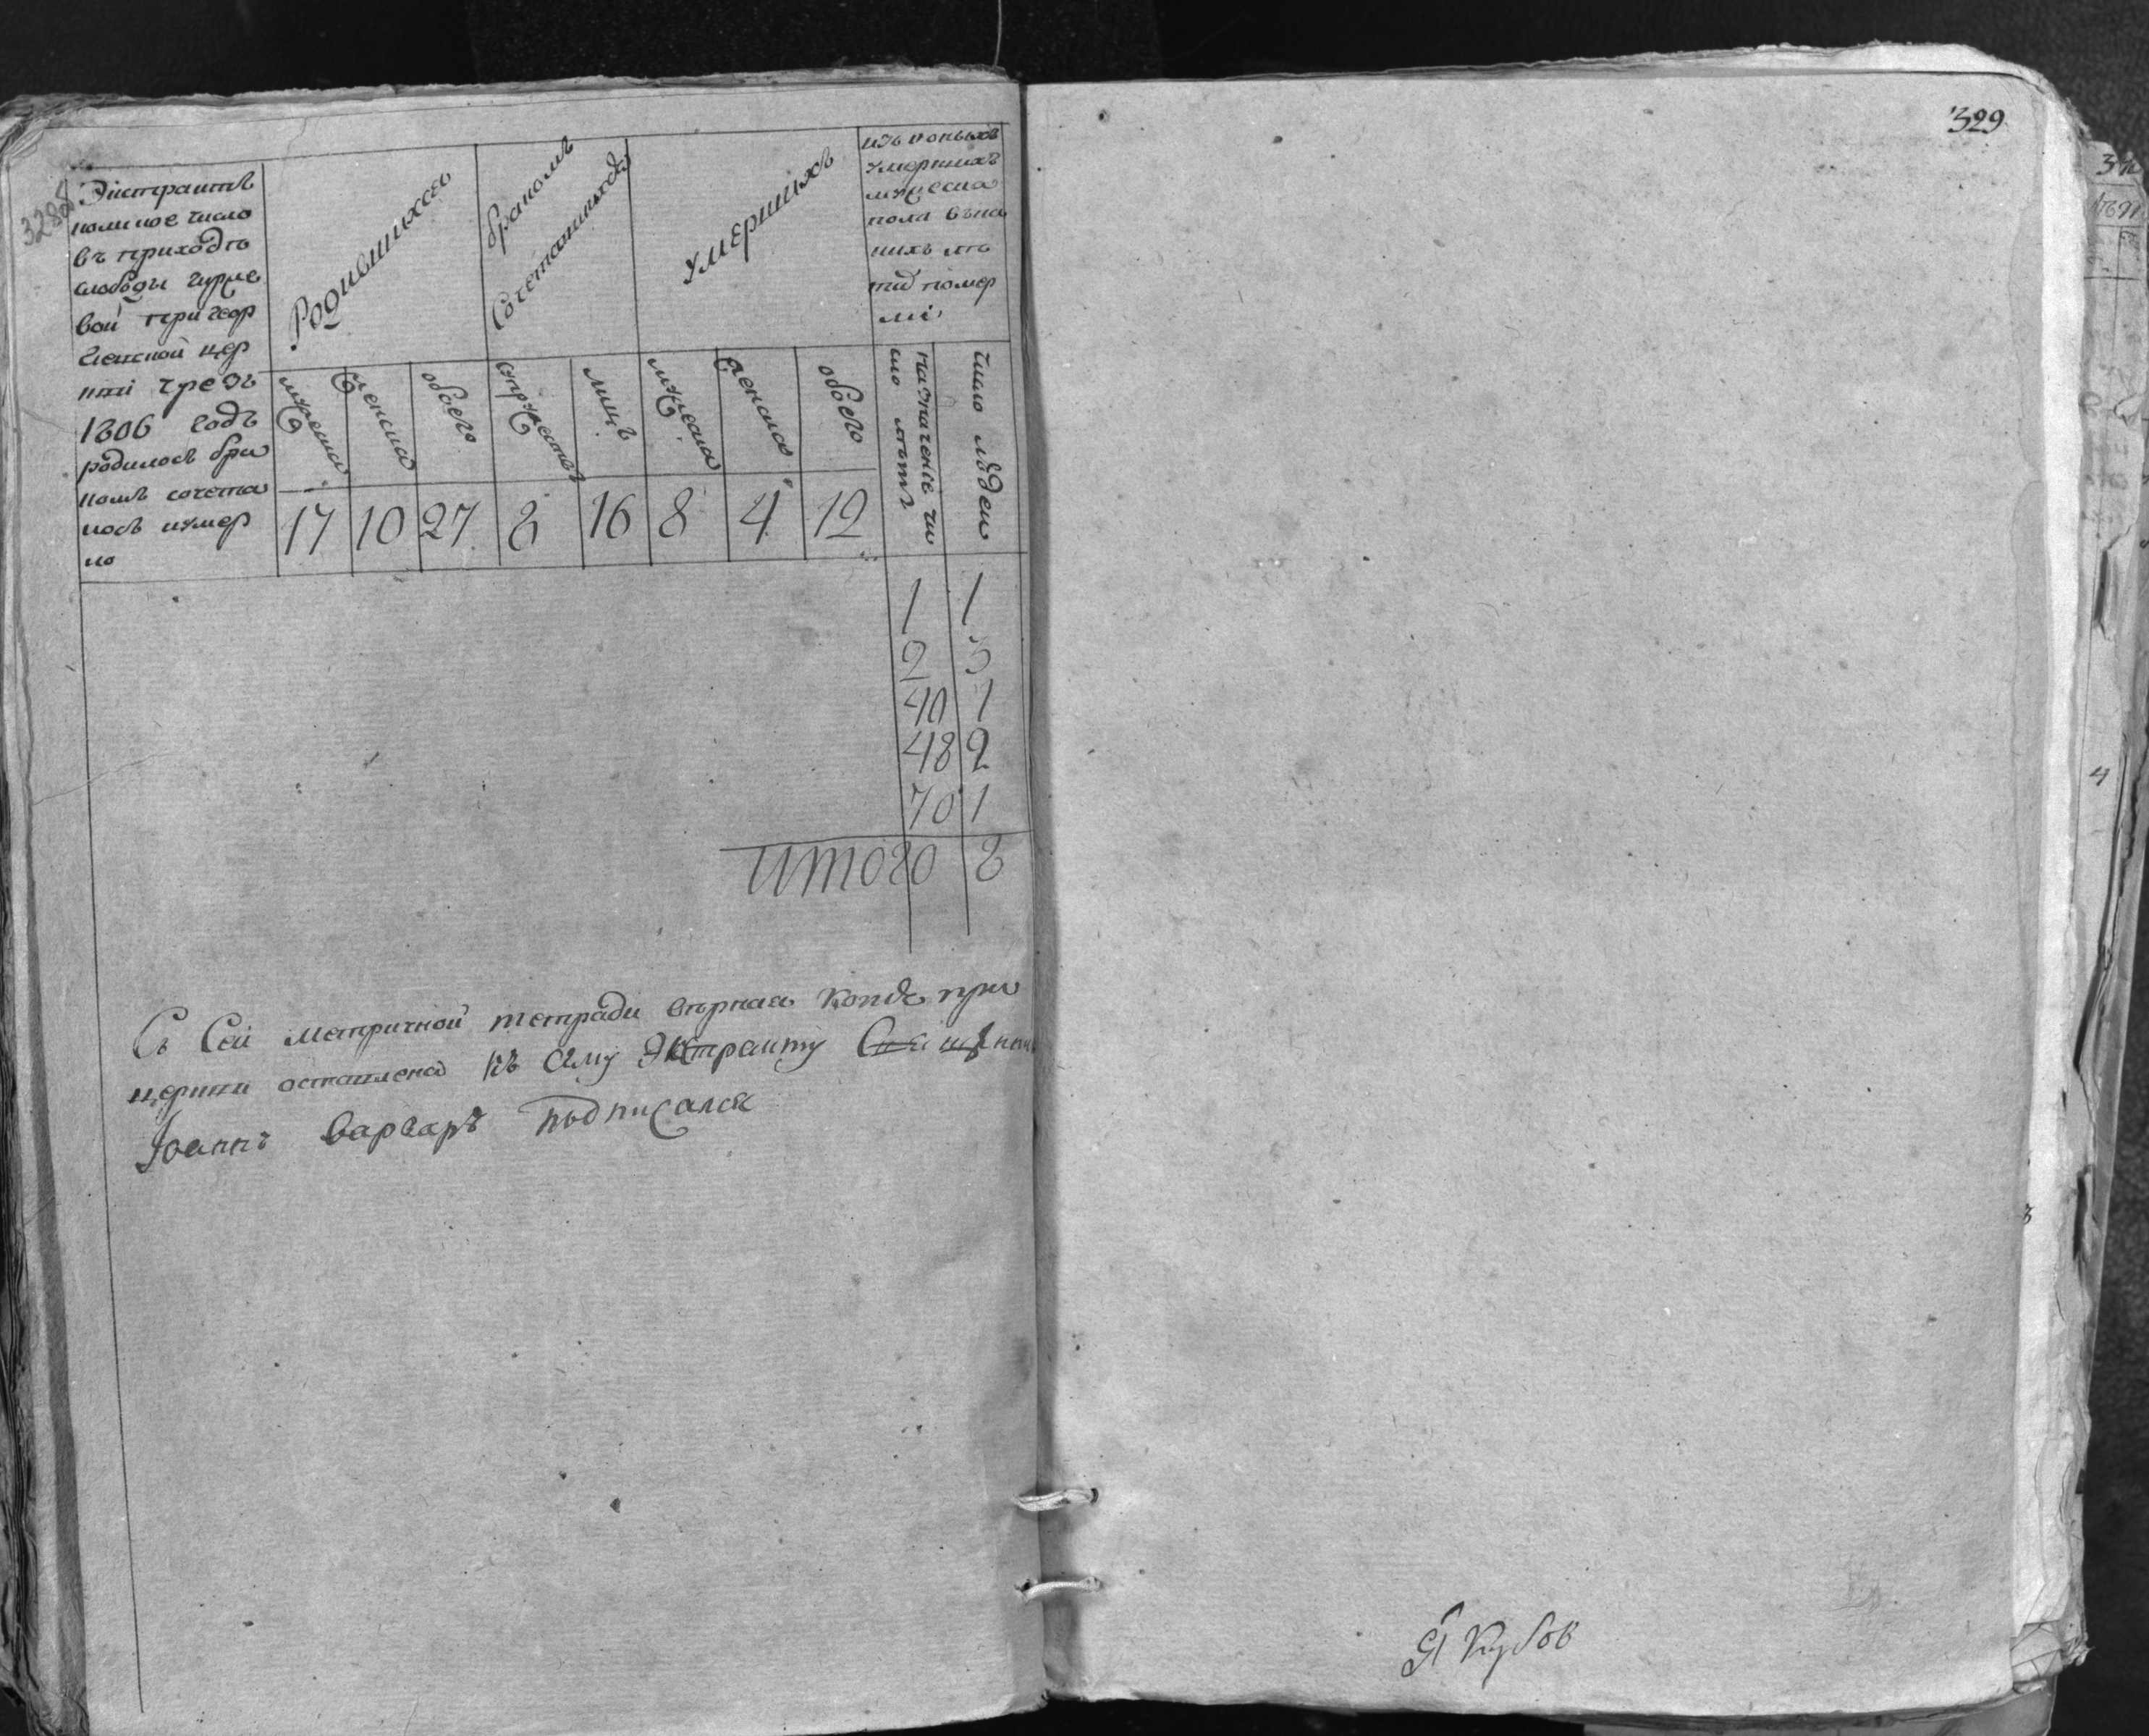 328
Экстрактъ
коликое число
въ приходѣ
слободы Чурле
вой при геор
гиевской цер
кви чрезъ
1806 годъ
родилось бра
комъ сочета
лось и умер
ло
Родившихся
бракомъ
Сочетавшихся
умершихъ
изъ коныхъ
умершихъ
мужеска
пола въка
кихъ лѣ
тъ помер
ли
мужеска
женска
обоего
супружествъ
лицъ
мужеска
женска
обоего
назначение чи
сло лѣтъ
число людей
17 10 27 8 16 8 4 12
1 1
2 3
40 1
48 2
70 1
итого 8
Съ Сей метричной тетради вѣрная копія при
церкви оставлена къ сему Экстракту
Іоаннъ Варваръ подписался
329
Якубов